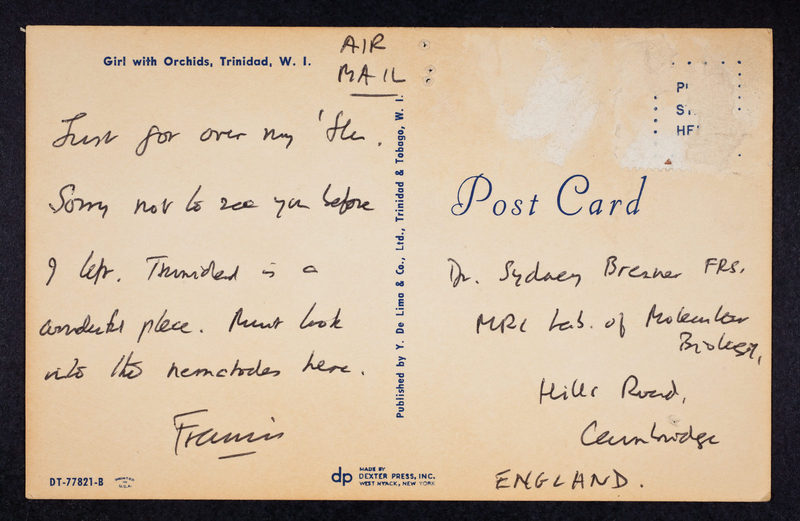 Girl with Orchids, Trinidad, W. I.
AIR
MAIL
Just got over my 'flu.
Sorry not to see you before
I left. Trinidad is a
wonderful place. Must look
into the nematodes here.
Francis
DT-77821-B
PRINTED
IN
U.S.A.
Published by Y. De Lima & Co., Ltd., Trinidad & Tobago, W. I.
dp
MADE BY
DEXTER PRESS, INC.
WEST NYACK, NEW YORK
Post Card
Dr. Sydney Brenner FRS.
MRC Lab. of Molecular
Biology,
Hills Road,
Cambridge
ENGLAND.